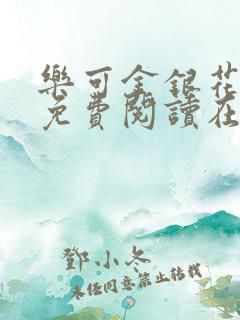 樂可金銀花
免費閱讀在
鄧小冬
未经同意禁止转载